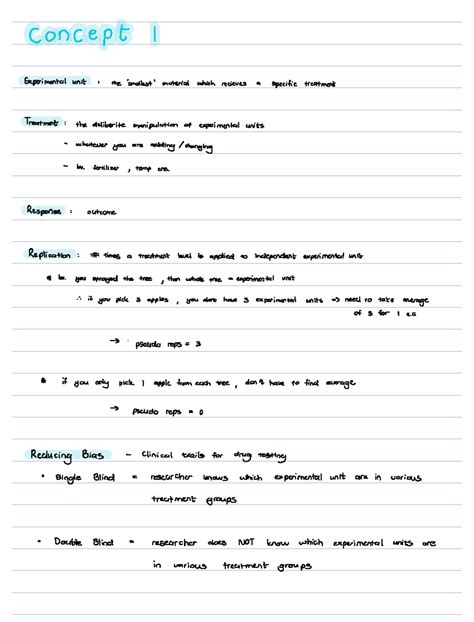 Concept 1
Experimental unit : the "smallest" material which recieves a specific treatment
Treatment : the deliberite manipulation of experimental units
- whatever you are adding / changing
- ie. fertiliser , temp
Response : outcome
Replication : # times a treatment level is applied to independent experimental unit
you sprayed the tree , then whole tree = experimental unit
∴ if you pick 3 apples , you dont have 3 experimental units → need to take average
of 3 for 1 e.u
→ pseudo reps = 3
* if you only pick 1 apple from each tree , don't have to find average
→ pseudo reps = 0
Reducing Bias - Clinical trails for drug testing
• Single Blind = researcher knows which experimental unit are in various
treatment groups
• Double Blind = researcher does NOT know which experimental units are
in various treatment groups